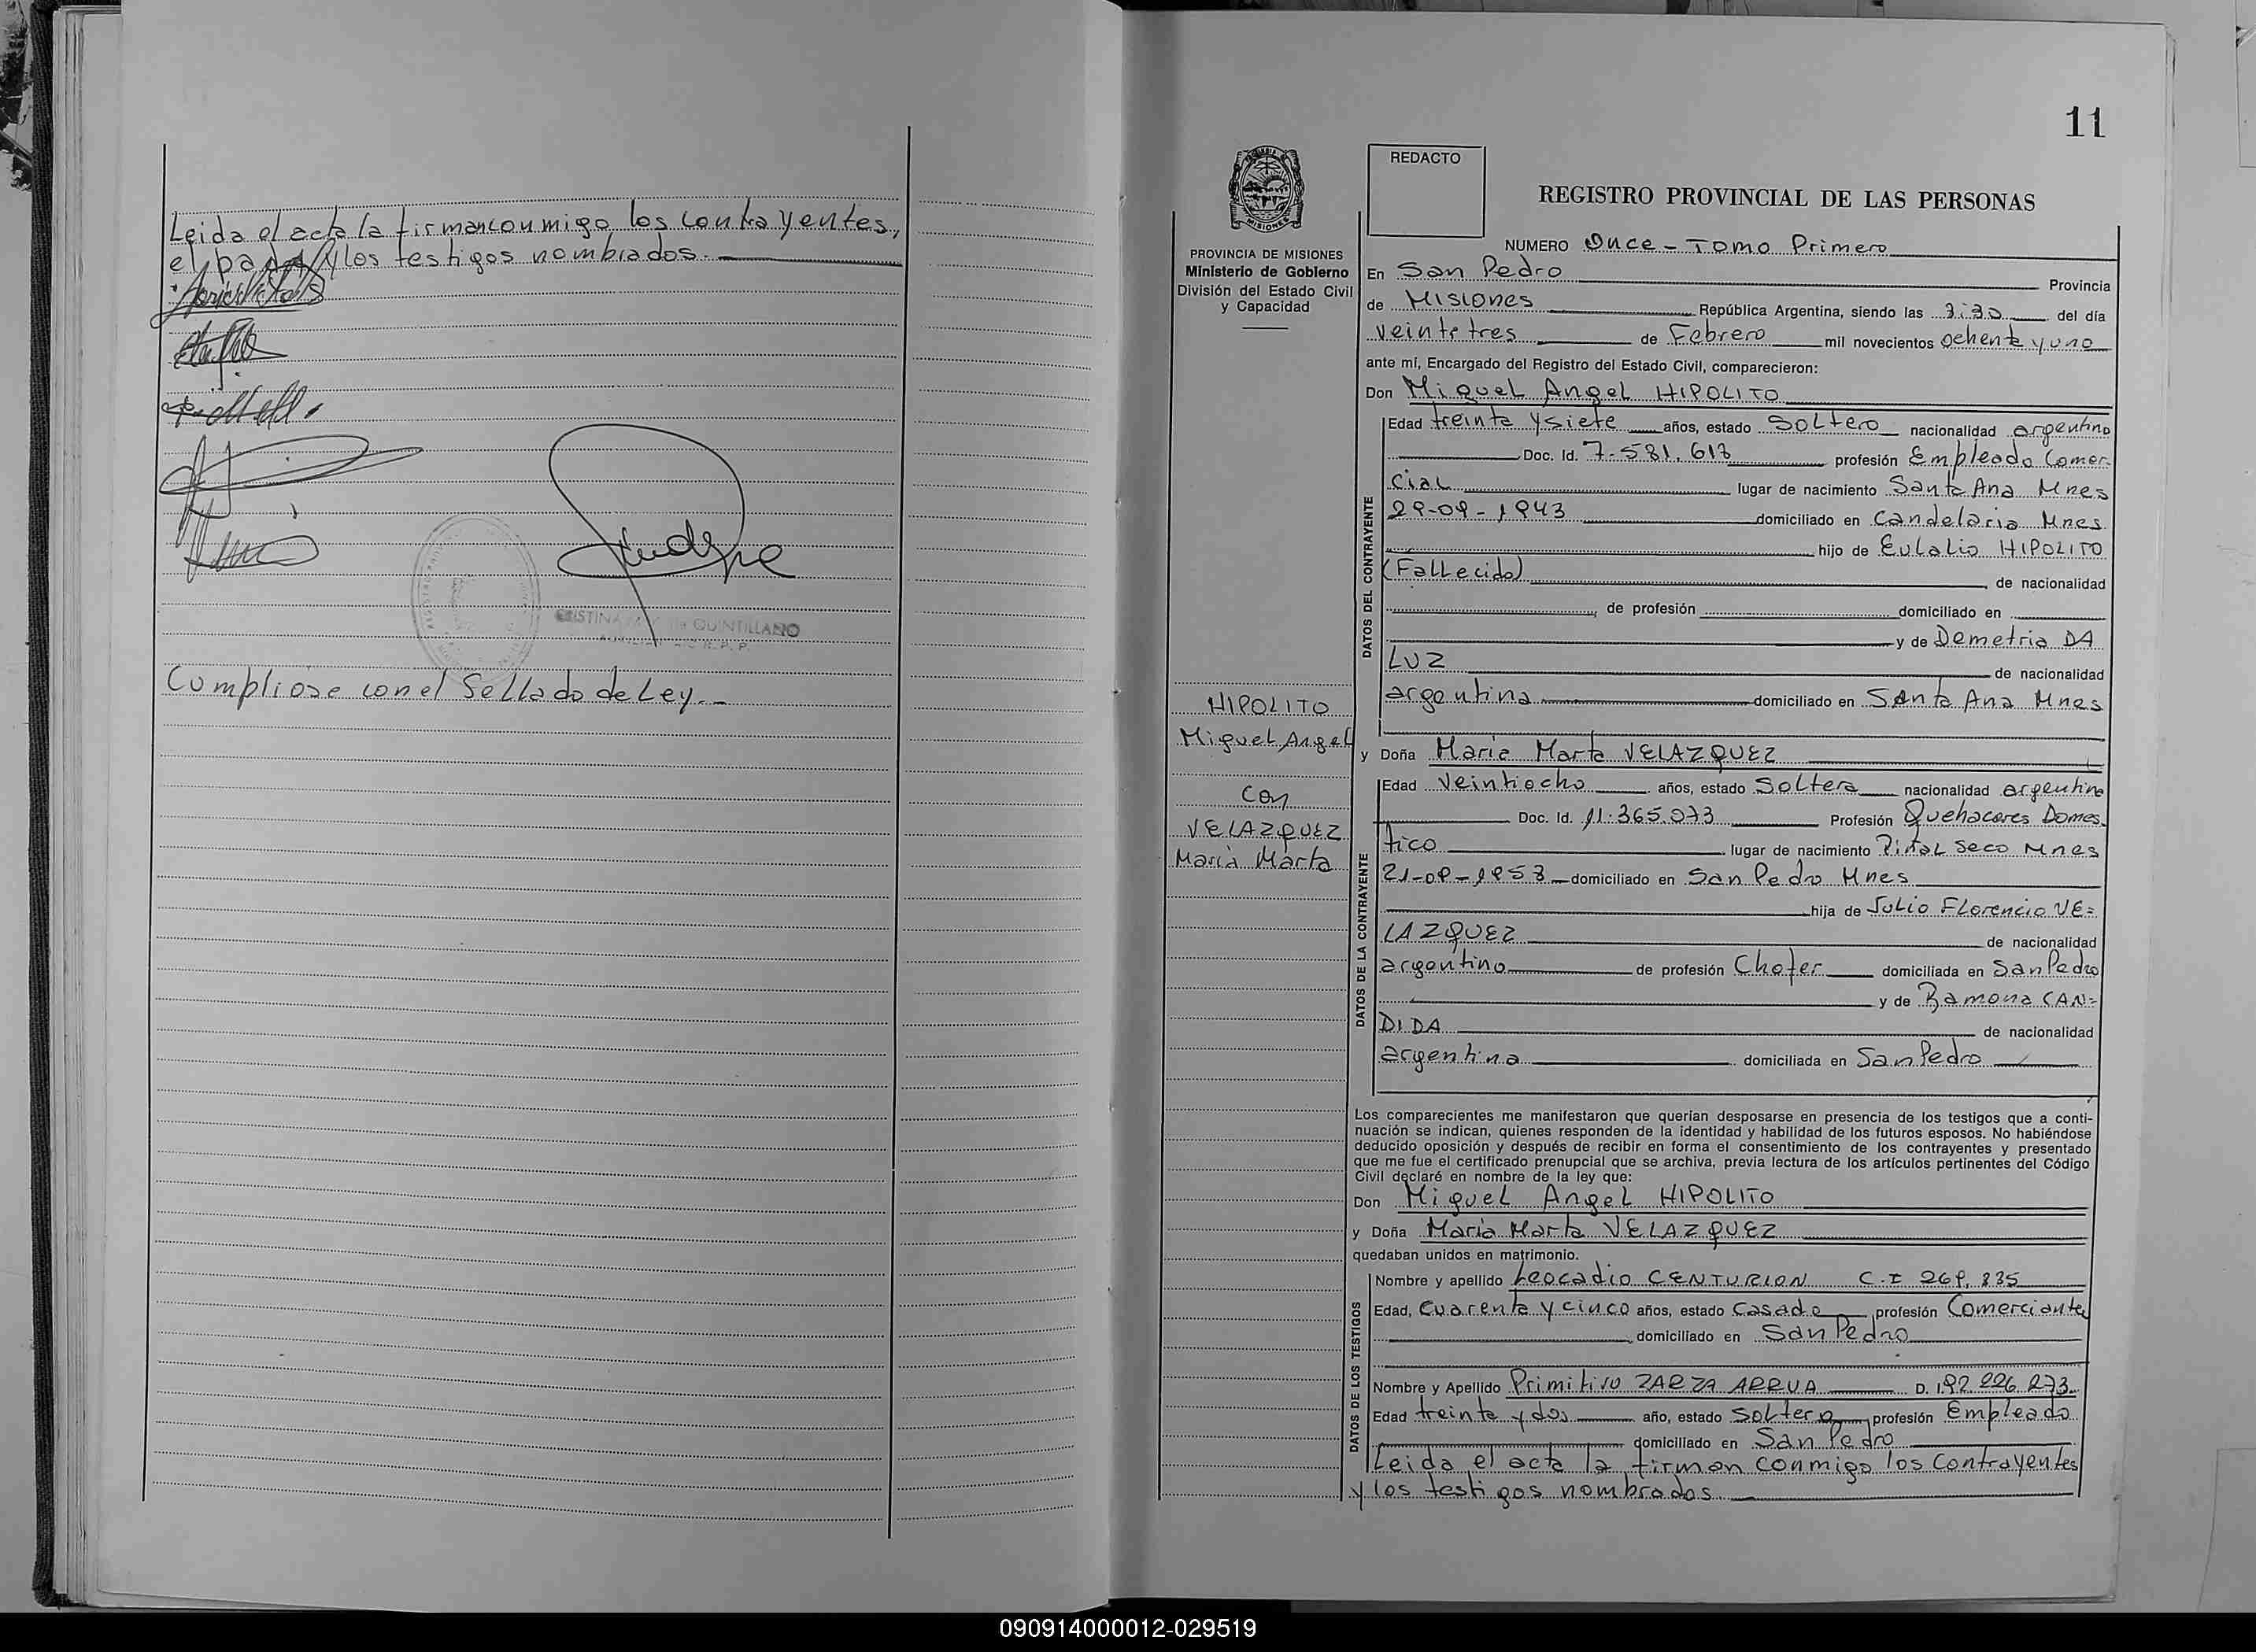 Leida el acta la firman conmigo los contrayentes,
el papá y los testigos nombrados.
QUINTILLANO
Cumpliose con el Sellado de Ley.
11
REDACTO
REGISTRO PROVINCIAL DE LAS PERSONAS
PROVINCIA DE MISIONES
Ministerio de Gobierno
División del Estado Civil
y Capacidad
HIPOLITO
Miguel Angel
con
VELAZQUEZ
María Marta
NUMERO Once - Tomo Primero
En San Pedro Provincia
de Misiones República Argentina, siendo las del día
veintetres de Febrero mil novecientos ochenta y uno
ante mí, Encargado del Registro del Estado Civil, comparecieron:
Don Miguel Angel HIPOLITO
DATOS DEL CONTRAYENTE
Edad treinta y siete años, estado Soltero nacionalidad argentino
Doc. Id. 7.581.613 profesión Empleado Comer-
cial lugar de nacimiento Santa Ana Mnes
29-09-1943 domiciliado en Candelaria Mnes
hijo de Eulalio HIPOLITO
(Fallecido) de nacionalidad
de profesión domiciliado en
y de Demetria DA
LUZ de nacionalidad
argentina domiciliado en Santa Ana Mnes
y Doña María Marta VELAZQUEZ
DATOS DE LA CONTRAYENTE
Edad Veintiocho años, estado Soltera nacionalidad argentina
Doc. Id. 11.365.073 Profesión Quehaceres Domes-
tico lugar de nacimiento Piñal Seco Mnes
domiciliado en San Pedro Mnes
hija de Julio Florencio VE=
LAZQUEZ de nacionalidad
argentino de profesión Chofer domiciliada en San Pedro
y de Ramona CAN=
DIDA de nacionalidad
argentina domiciliada en San Pedro
Los comparecientes me manifestaron que querían desposarse en presencia de los testigos que a conti-
nuación se indican, quienes responden de la identidad y habilidad de los futuros esposos. No habiéndose
deducido oposición y después de recibir en forma el consentimiento de los contrayentes y presentado
que me fue el certificado prenupcial que se archiva, previa lectura de los artículos pertinentes del Código
Civil declaré en nombre de la ley que:
Don Miguel Angel HIPOLITO
y Doña María Marta VELAZQUEZ
quedaban unidos en matrimonio.
DATOS DE LOS TESTIGOS
Nombre y apellido Leocadio CENTURION C.I 269.835
Edad, Cuarenta y cinco años, estado Casado profesión Comerciante
domiciliado en San Pedro
Nombre y Apellido Primitivo ZARZA ARRUA D. I 92.226.273
Edad treinta y dos año, estado Soltero profesión Empleado
domiciliado en San Pedro
Leida el acta la firman conmigo los contrayentes
y los testigos nombrados
090914000012-029519